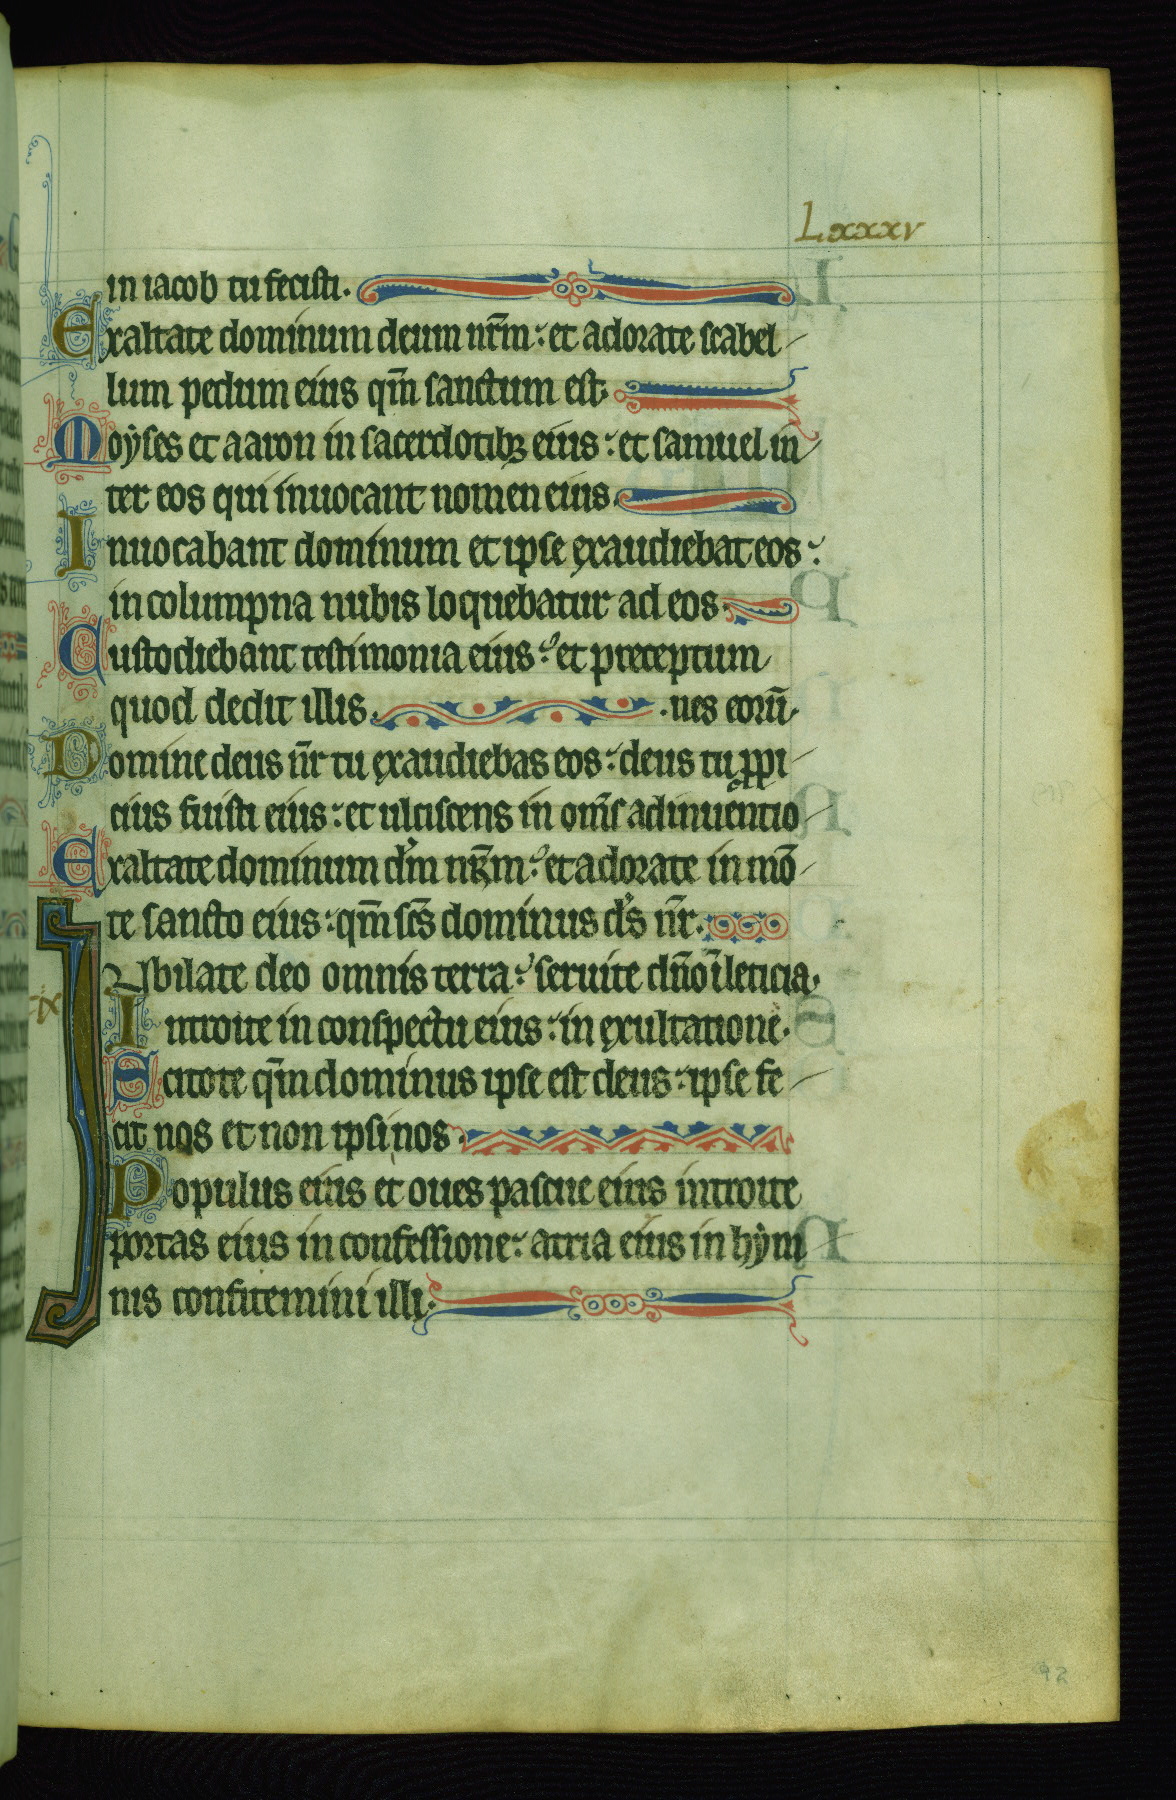 Lxxxv
in iacob tu fecisti.
Exaltate dominum deum nr̄m: et adorate scabel
lum pedum eius qm̄ sanctum est.
Moẏses et aaron in sacerdotibꝫ eius: et samuel in
ter eos qui inuocant nomen eius.
Inuocabant dominum et ipse exaudiebat eos:
in columpna nubis loquebatur ad eos.
Custodiebant testimonia eius: et preceptum
quod dedit illis. .nes eorū.
Domine deus nr̄ tu exaudiebas eos: deus tu ꝓpi
cius fuisti eius: et ulciscens in om̄s adinuentio
Exaltate dominum dm̄ nr̄m: et adorate in mō
te sancto eius: qm̄ scs̄ dominus ds̄ nr̄.
ix
Jubilate deo omnis terra: seruite dn̄o ī leticia.
Introite in conspectu eius: in exultatione.
Scitote qm̄ dominus ipse est deus: ipse fe
cit nos et non ipsi nos.
Populus eius et oues pascue eius introite
portas eius in confessione: atria eius in hẏm
nis confitemini illi.
92